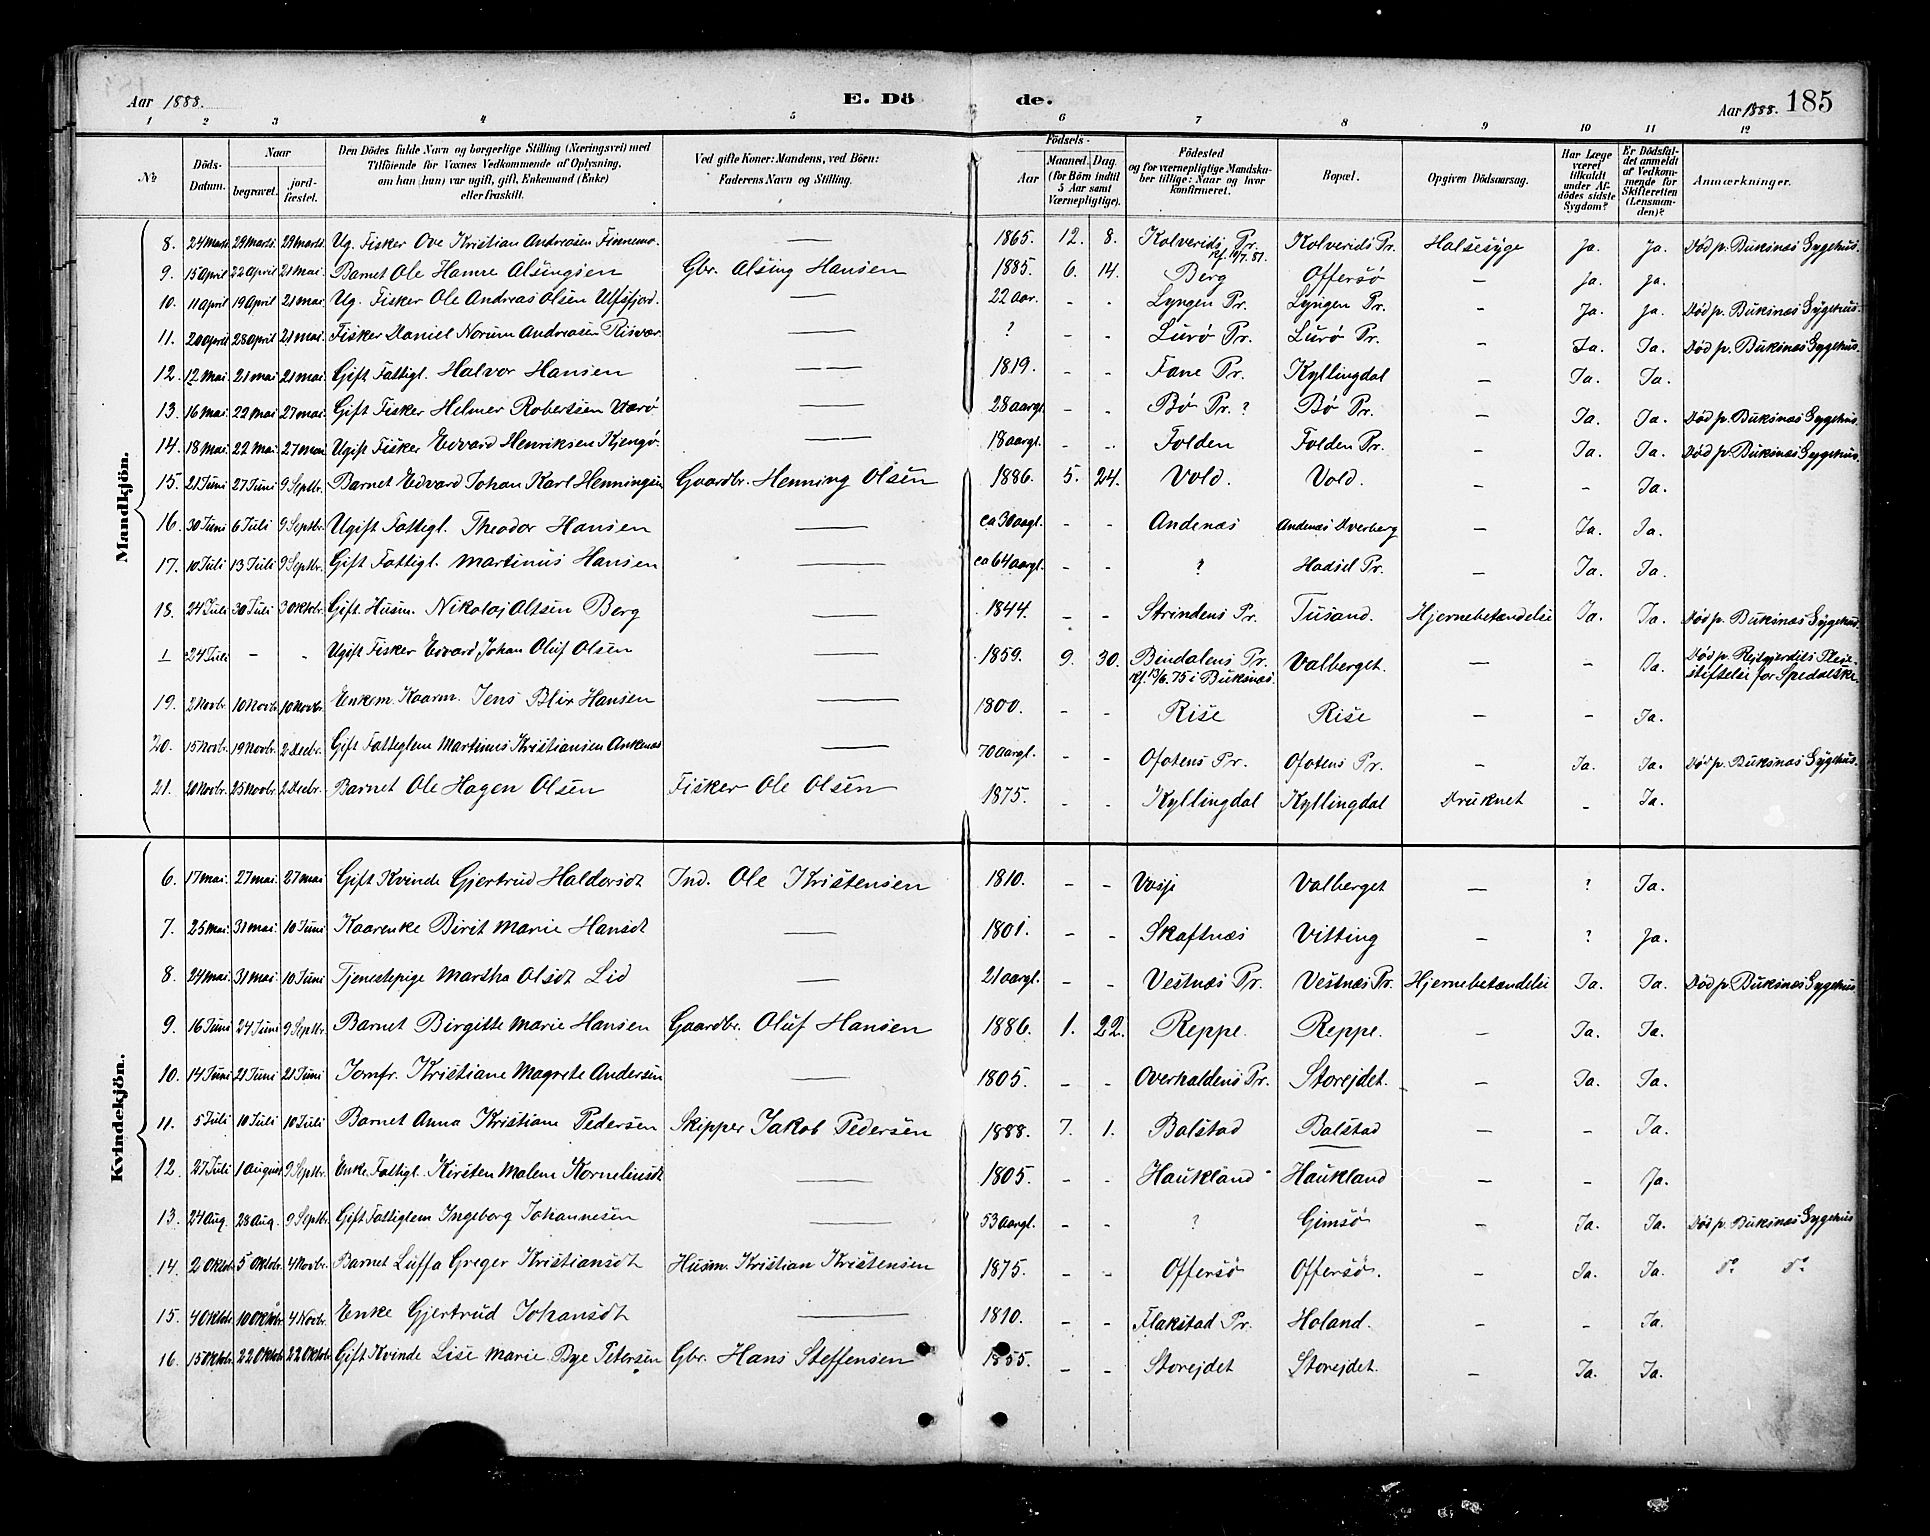 Aar 1888. E. Döde. Aar 1888. 185
1 2 3 4 5 6 7 8 9 10 11 12
№ Döds-Datum. Naar begravet. jordfæstet. Den Dödes fulde Navn og borgerlige Stilling (Næringsvei) med Tilföiende for Voxnes Vedkommende af Oplysning, om han (hun) var ugift, gift, Enkemand (Enke) eller fraskilt. Ved gifte Koner: Mandens, ved Börn: Faderens Navn og Stilling. Födsels- Aar Maaned. Dag. (for Börn indtil 5 Aar samt Værnepligtige). Födested og for værnepligtige Mandskaber tillige: Naar og hvor konfirmeret. Bopæl. Opgiven Dödsaarsag. Har Læge været tilkaldt under Afdödes sidste Sygdom? Er Dödsfaldet anmeldt af Vedkommende for Skifteretten (Lensmanden)? Anmærkninger.
Mandkjön.
8. 24 Marts 29 Marts 29 Marts Ug. Fisker Ove Kristian Andreasen Finnemo. — 1865. 12. 8. Kolvereids Pr. Kf. 10/7. 81. Kolvereids Pr. Halsesyge Ja. Ja. Död p. Buksnæs Sygehus.
9. 15 April 22 April 21 Mai. Barnet Ole Hamre Alsingsen Gbr. Alsing Hansen 1885. 6. 14. Berg Offersø — Ja. Ja.
10. 11 April 19 April 21 Mai. Ug. Fisker Ole Andreas Olsen Ulfsfjord. — 22 aar. - - Lyngen Pr. Lyngen Pr. — Ja. Ja. Död p. Buksnæs Sygehus.
11. 20 April 28 April 21 Mai. Fisker Daniel Norum Andreasen Risvær. — ? - - Lurø Pr. Lurø Pr. — Ja. Ja. Död p. Buksnæs Sygehus.
12. 12 Mai. 21 Mai 21 Mai. Gift Fattigl. Halvor Hansen — 1819. - - Fane Pr. Kyllingdal — Ja. Ja.
13. 16 Mai. 22 Mai 27 Mai. Gift Fisker Helmer Robertsen Værø — 28 aargl. - - Bø Pr. ? Bø Pr. — Ja. Ja. Död p. Buksnæs Sygehus.
14. 18 Mai. 22 Mai. 27 Mai Ugift Fisker Edvard Henriksen Kjengø. — 18 aargl. - - Folden Folden Pr. — Ja. Ja. Död p. Buksnæs Sygehus.
15. 21 Juni 27 Juni 9 Septbr. Barnet Edvard Johan Karl Henningsen Gaardbr. Henning Olsen 1886. 5. 24. Vold. Vold. — - Ja.
16. 30 Juni 6 Juli 9 Septbr. Ugift Fattigl. Theodor Hansen — ca 30 aargl. - - Andenæs Andenæs Dverberg — Ja. Ja.
17. 10 Juli 13 Juli 9 Septbr. Gift Fattigl. Martinus Hansen — ca 64 aargl. - - ? Hadsel Pr. — Ja. Ja.
18. 24 Juli 30 Juli 30 Oktbr. Gift. Husm. Nikolaj Olsen Berg — 1844. - - Strindens Pr. Tusand. Hjernebetændelse Ja. Ja. Död p. Buksnæs Sygehus.
I 24 Juli - - Ugift Fisker Edvard Johan Oluf Olsen — 1859. 9. 30. Bindalens Pr. Kf. 13/6. 75 i Buksnæs. Valberget. — - Ja. Död p. Rejtgjerdets Pleie-stiftelse for Spedalske.
19. 2 Novbr. 10 Novbr. 10 Novbr. Enkem. Kaarm. Jens Blix Hansen — 1800. - - Rise Rise — - Ja.
20. 15 Novbr. 19 Novbr. 2 Decbr. Gift Fattiglem Martinus Kristiansen Ankenæs — 70 aargl. - - Ofotens Pr. Ofotens Pr. — Ja. Ja. Död p. Buksnæs Sygehus.
21. 20 Novbr. 25 Novbr. 2 Decbr. Barnet Ole Hagen Olsen Fisker Ole Olsen 1875. - - Kyllingdal Kyllingdal Druknet - Ja.
Kvindekjön.
6. 17 Mai. 27 Mai. 27 Mai Gift Kvinde Gjertrud Haldorsdt Ind. Ole Kristensen 1810. - - Vosje Valberget — ? Ja.
7. 25 Mai. 31 Mai. 10 Juni Kaarenke Birit Marie Hansdt — 1801. - - Skaftnæs Vitting — ? Ja.
8. 24 Mai. 31 Mai. 10 Juni Tjenestepige Martha Olsdt Lid — 21 aargl. - - Vestnæs Pr. Vestnæs Pr. Hjernebetændelse Ja. Ja. Död p. Buksnæs Sygehus
9. 16 Juni 24 Juni 9 Septbr. Barnet Birgitte Marie Hansen Gaardbr. Oluf Hansen 1886. 1. 22. Reppe. Reppe. — Ja. Ja.
10. 14 Juni 21 Juni 21 Juni Jomfr. Kristiane Magrete Andersen — 1805. - - Overhaldens Pr. Storejdet. — Ja. Ja.
11. 5 Juli 10 Juli 10 Juli Barnet Anna Kristiane Pedersen Skipper Jakob Pedersen 1888. 7. 1. Balstad Balstad — - Ja.
12. 27 Juli 1 August 9 Septbr. Enke. Fattigl. Kirsten Malem Korneliusdt — 1805. - - Haukland Haukland — - Ja.
13. 24 Aug. 28 Aug. 9 Septbr. Gift Fattiglem Ingeborg Johannesen — 53 aargl. - - ? Gimsø — Ja. Ja. Död p. Buksnæs Sygehus
14. 2 Oktbr. 5 Oktbr. 4 Novbr. Barnet Luffa Greger Kristiansdt Husm. Kristian Kristensen 1875. - - Offersø Offersø. — Ja. Ja. do do
15. 4 Oktbr. 10 Oktbr. 4 Novbr. Enke Gjertrud Johansdt — 1810. - - Flakstad Pr. Holand. — - Ja.
16. 15 Oktbr. 22 Oktbr. 22 Oktbr. Gift Kvinde Lise Marie Bye Petersen Gbr. Hans Steffensen 1855. - - Storejdet Storejdet. — Ja. Ja.